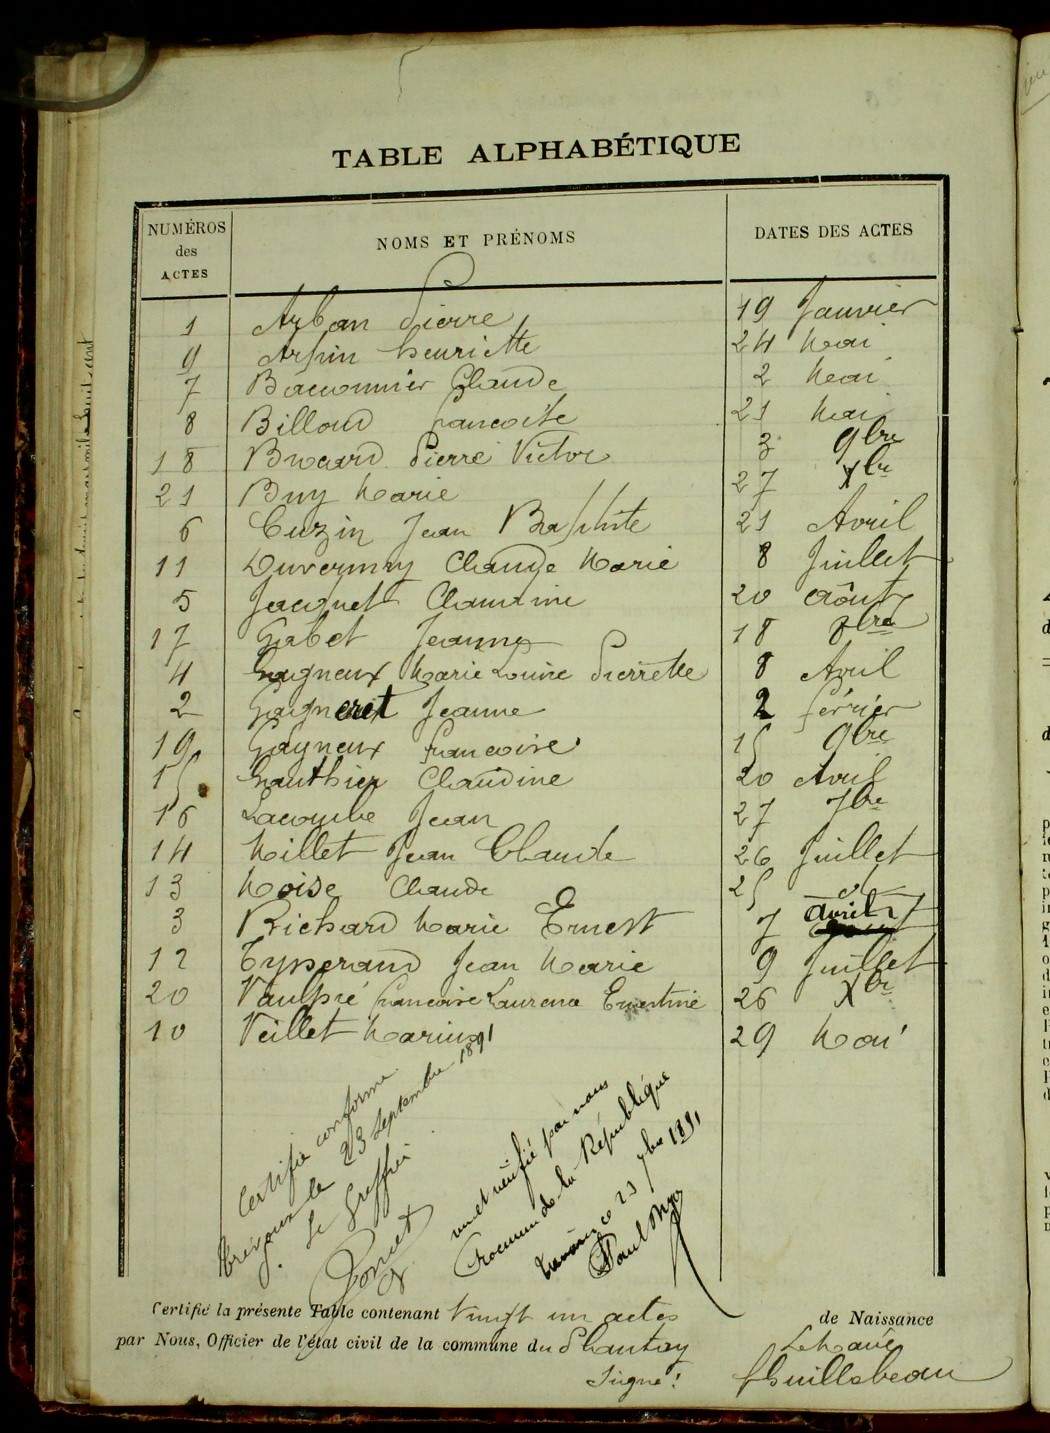 TABLE ALPHABÉTIQUE
NUMÉROS des ACTES NOMS ET PRÉNOMS DATES DES ACTES
1 Arban Pierre 19 Janvier
9 Arpin henriette 24 Mai
7 Baconnier Claude 2 Mai
8 Billoud francoise 21 Mai
18 Brocard Pierre Victor 3 9bre
21 Buy Marie 27 Xbre
6 Cuzin Jean Baptiste 21 Avril
11 Duvernay Claude Marie 8 Juillet
5 Jacquet Claudine 20 Août
17 Gabet Jeanne 18 8bre
4 Gagneux Marie Louise Pierrette 8 Avril
2 Gaigneret Jeanne 2 février
19 Gagneux francoise 15 9bre
15 Gauthier Claudine 20 Avril
16 Lacombe Jean 27 7bre
14 Millet Jean Claude 26 Juillet
13 Moise Claude 25 d
3 Richard Marie Ernest 7 avril
12 Tysserand Jean Marie 9 Juillet
20 Vaulpré francoise Laurence Ernestine 26 Xbre
10 Veillet Marius 29 Mai
Certifié conforme
Trévoux le 23 Septembre 1891
Le Greffier
Poncet
vu et vérifié par nous
Procureur de la République
Trévoux ce 23 7bre 1891
Paul
Certifié la présente Table contenant Vingt un actes de Naissance
par Nous, Officier de l'état civil de la commune du Plantay Le Maire
Signé: Guillebeau